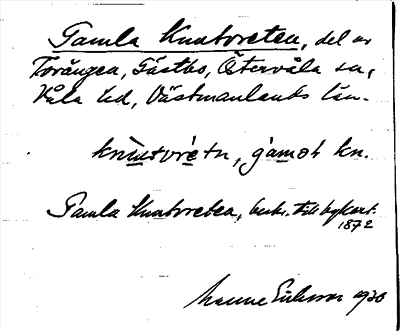 Gamla Knutvreten, del av
Torängen, Gästbo, Östervåla sn,
Våla hd, Västmanlands län.
gamət kn.
Gamla Knutvreten, beskr. till bykart.
1872
Manne Eriksson 1930